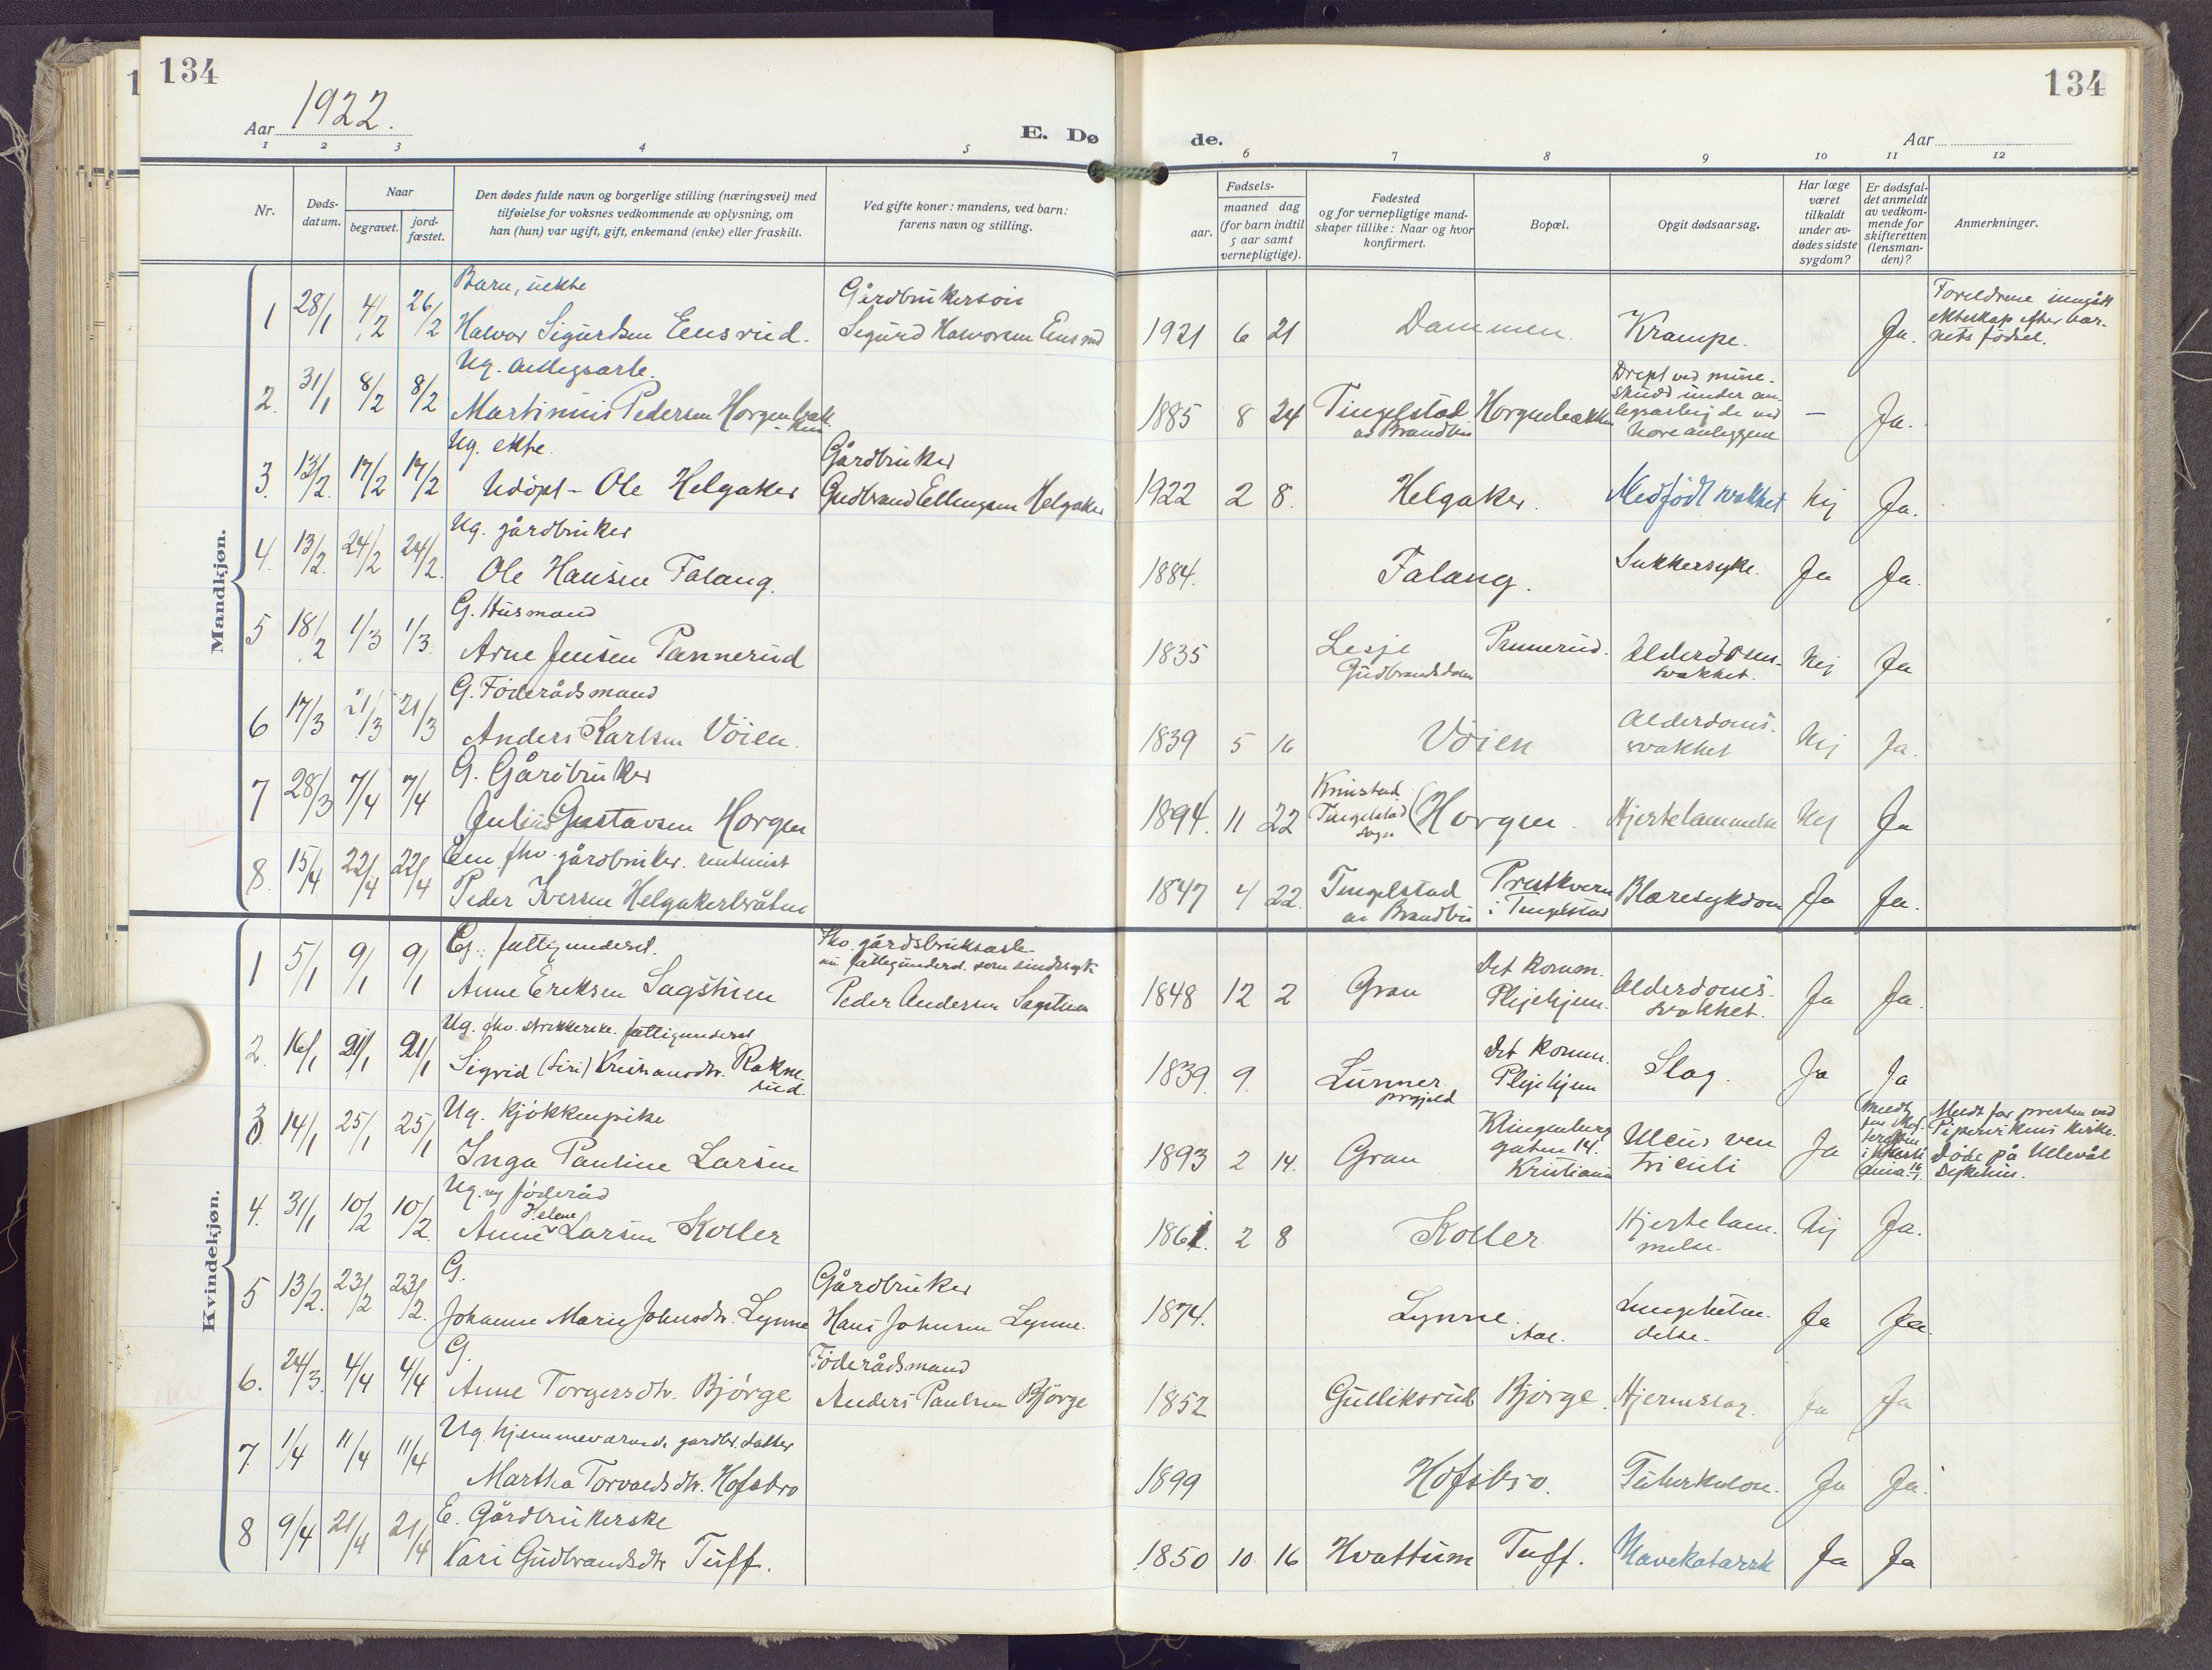 134
134
Aar 1922.
E. Dø
de.
Aar
1 2 3 4 5 6 7 8 9 10 11 12
Nr.
Døds-
datum.
Naar
begravet.
jord-
fæstet.
Den dødes fulde navn og borgerlige stilling (næringsvei) med
tilføielse for voksnes vedkommende av oplysning, om
han (hun) var ugift, gift, enkemand (enke) eller fraskilt.
Ved gifte koner: mandens, ved barn:
farens navn og stilling.
Fødsels-
aar.
maaned dag
(for barn indtil
5 aar samt
vernepligtige).
Fødested
og for vernepligtige mand-
skaper tillike: Naar og hvor
konfirmert.
Bopæl.
Opgit dødsaarsag.
Har læge
været
tilkaldt
under av-
dødes sidste
sygdom?
Er dødsfal-
det anmeldt
av vedkom-
mende for
skifteretten
(lensman-
den)?
Anmerkninger.
Mandkjøn.
1 28/1 4/2 26/2
Barn, uekte
Halvor Sigurdsen Eensrud.
Gårdbrukersøn
Sigurd Halvorsen Eensrud
1921 6 21 Dammen. Krampe. Ja.
Foreldrene inngått
ekteskap efter bar-
nets fødsel.
2. 31/1 8/2 8/2
Ug. anlegsarb.
Martinius Pedersen Horgenbakk-
1885 8 24
Tingelstad
av Brandbu
Horgenbakken
Drept ved mine-
skudd under an-
legsarbeide ved
Nore anleggene
— Ja.
3. 13/2. 17/2 17/2
Ug. ekte.
Udøpt - Ole Helgaker
Gårdbruker
Gudbrand Ellingsen Helgaker
1922 2 8. Helgaker. Medfødt svakhet Nej Ja.
4. 13/2. 24/2 24/2.
Ug. gårdbruker
Ole Hansen Falang.
1884. Falang. Sukkersyke. Ja Ja.
5 18/2 1/3 1/3
G. Husmand
Arne Jensen Pannerud
1835
Lesje
Gudbrandsdalen
Pannerud.
Alderdoms-
svakhet.
Nej Ja
6 17/3 21/3 21/3
G. Føderådsmand
Anders Karlsen Vøien.
1839 5 16 Vøien
Alderdoms-
svakhet
Nej Ja.
7 28/3 7/4 7/4
G. Gårdbruker
Julius Gustavsen Horgen
1894. 11 22
Tingelstad
sogn
(Horgen. Hjertelammelse Nej Ja
8. 15/4 22/4 22/4
Em. fhv. gårdbruker. rentenist
Peder Iversen Helgakerbråten
1847 4 22.
Tingelstad
av Brandbu
Prestkvern
i Tingelstad
Blæresykdom Ja Ja.
Kvindekjøn.
1 5/1 9/1 9/1
G. fattigunderst.
Anne Eriksen Sagstuen
Fhv. gårdsbruksarb.
nu fattigunderst. som sindssyk
Peder Andersen Sagstuen
1848 12 2 Gran
Det komm.
Plejehjem.
Alderdoms-
svakhet.
Ja Ja.
2. 16/1 21/1 21/1
Ug. fhv. strikkerske. fattigunderst
Sigrid (Siri) Kristiansdtr. Rakne-
rud.
1839. 9.
Lunner
prgjeld
Det komm.
Plejehjem
Slag. Ja Ja
3 14/1 25/1 25/1
Ug. kjøkkenpike
Inga Pauline Larsen
1893 2 14. Gran
Klingenberg
gaten 14.
Kristiania
Ulcus ven
triculi
Ja
Meldt
Meldt for presten ved
Pipervikens kirke.
Døde på Ullevål
sykehus.
4. 31/1 10/2 10/2.
Ug. føderåd
Anne Helene Larsen Koller
1861. 2 8 Koller
Hjertelam-
melse.
Nej Ja.
5 13/2. 23/2 23/2.
G.
Johanne Marie Johnsdtr. Lynne
Gårdbruker
Hans Johnsen Lynne.
1874. Lynne.
Aal.
Lungebeten-
delse.
Ja Ja.
6. 24/3. 4/4 4/4
G.
Anne Torgersdtr. Bjørge
Føderådsmand
Anders Paulsen Bjørge
1852 Gulliksrud Bjørge. Hjerneslag. Ja Ja
7 1/4 11/4 11/4
Ug. hjemmeværende gardbr. datter
Martha Torvaldsdtr. Hofsbro
1899 Hofsbro. Tuberkulose. Ja Ja.
8 9/4 21/4 21/4
E. Gårdbrukerske
Kari Gudbrandsdtr Tuff.
1850 10 16 Hvattum Tuff. Mavekatarrh Ja Ja